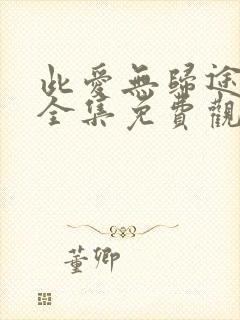 此愛無歸途
全集免費觀
董卿